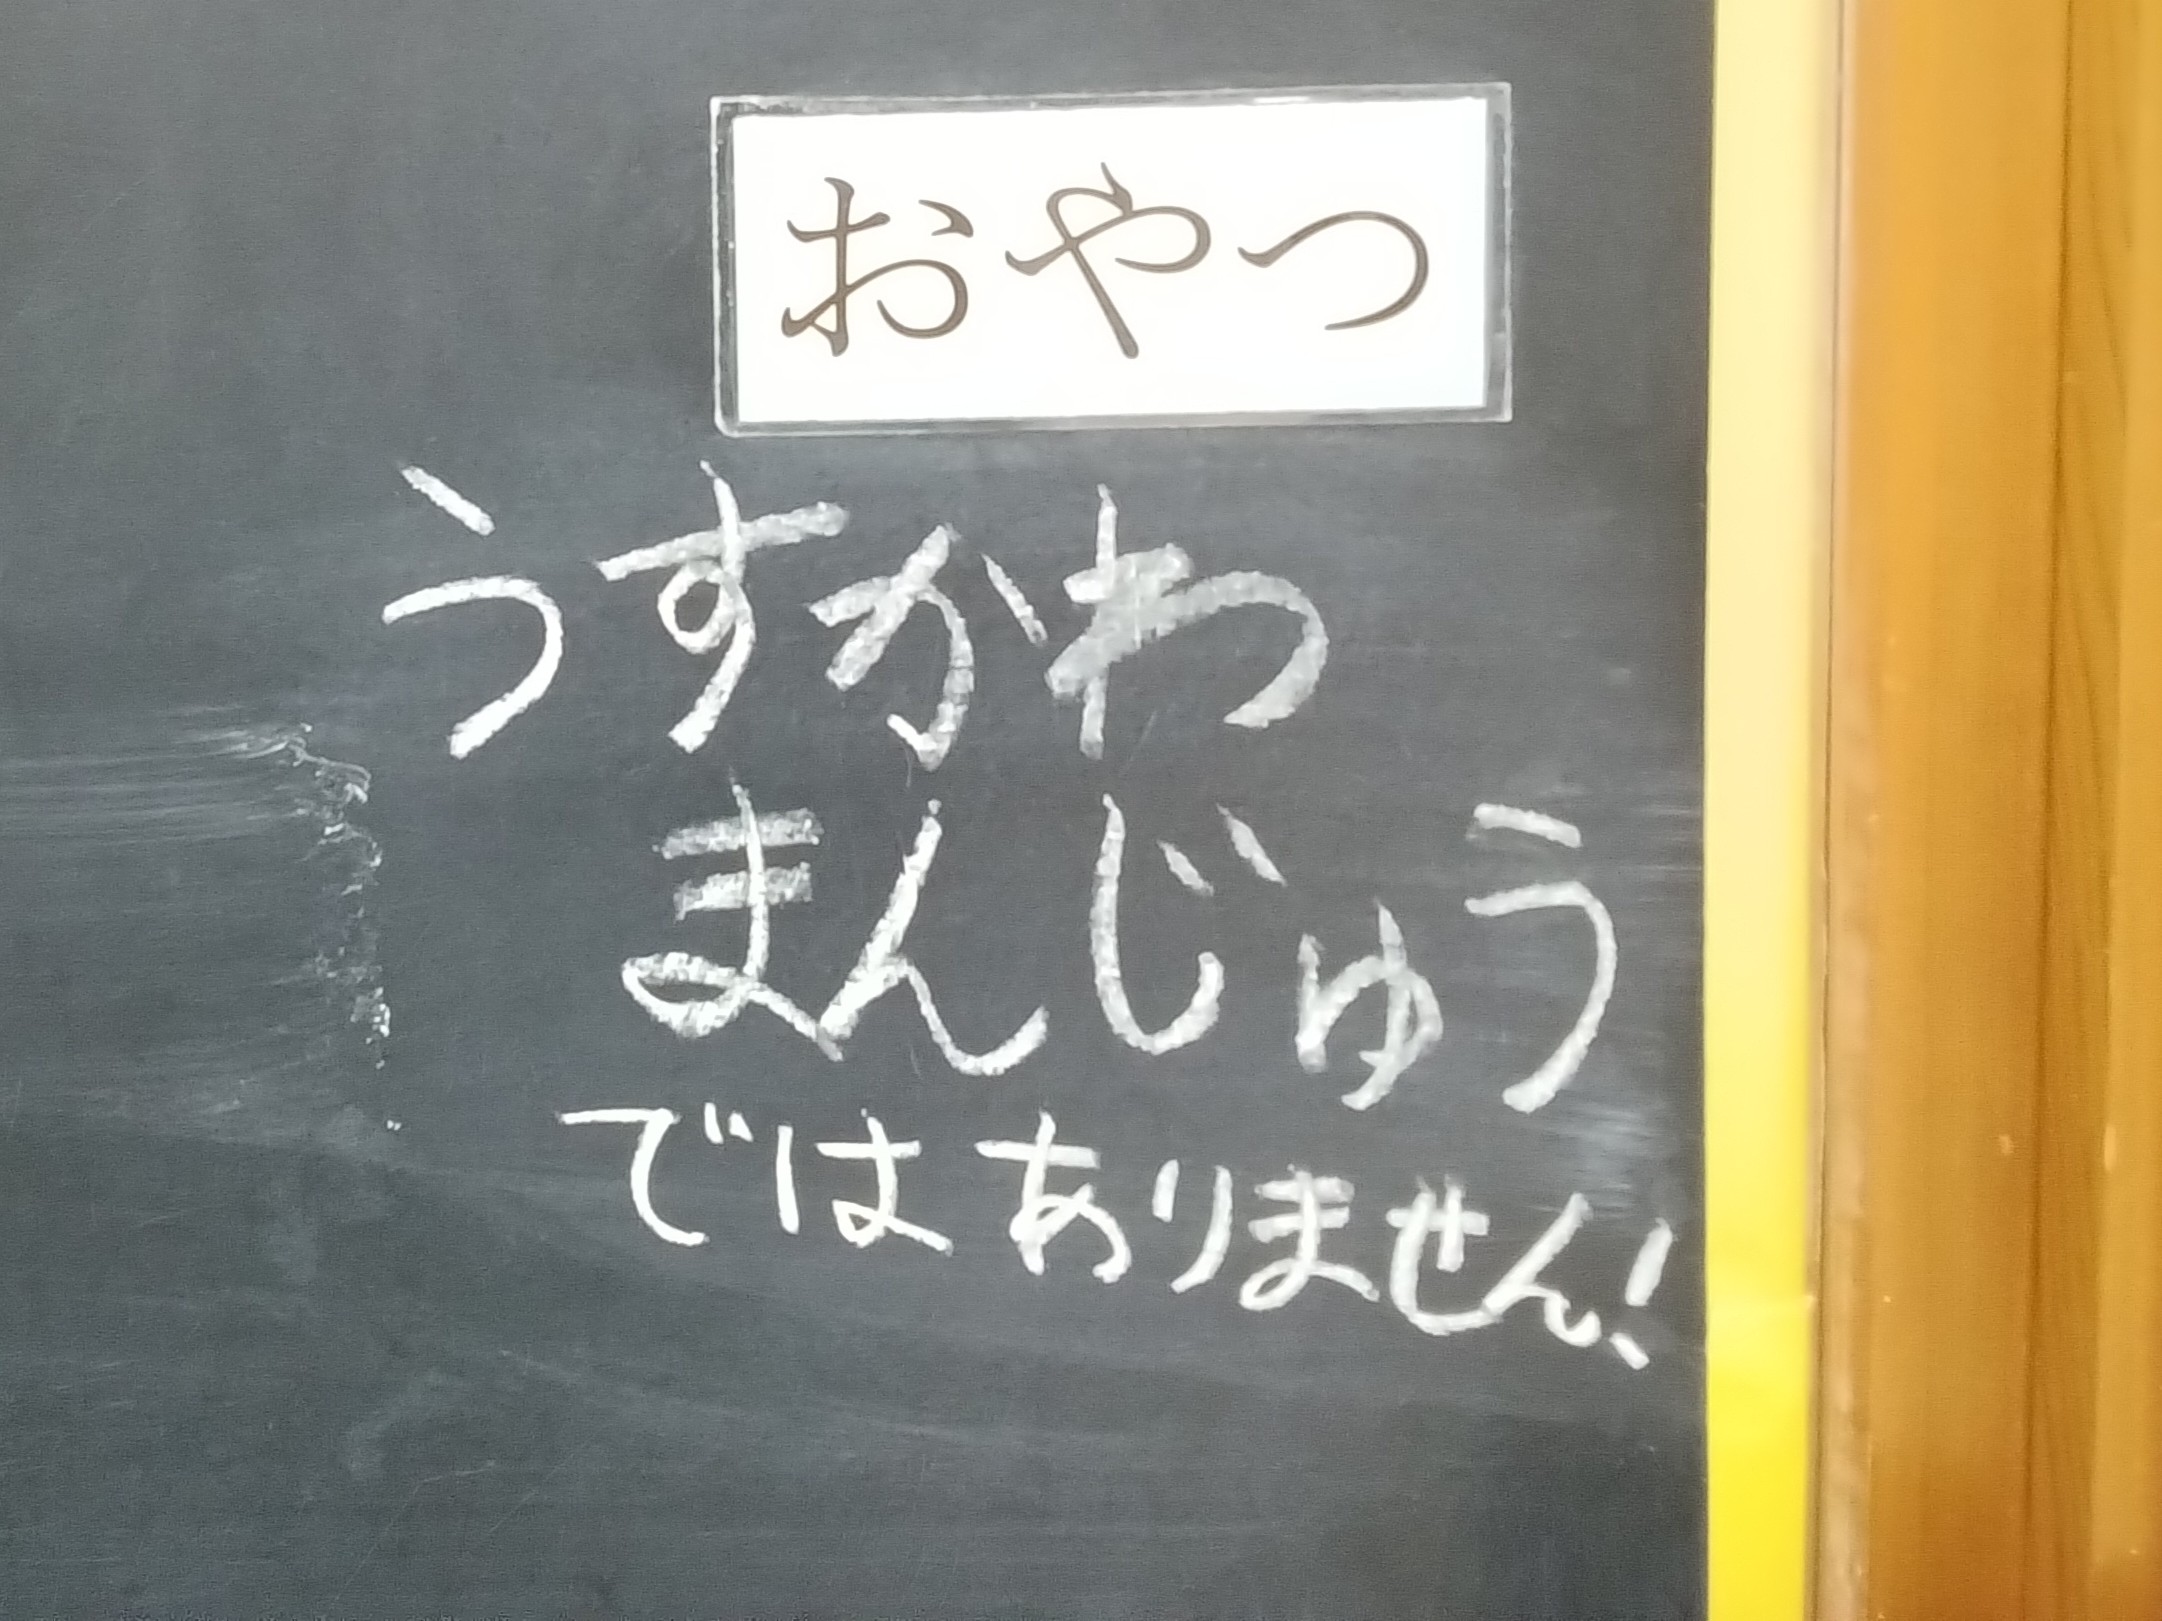 おやつ
うすかわ
まんじゅう
ではありません!